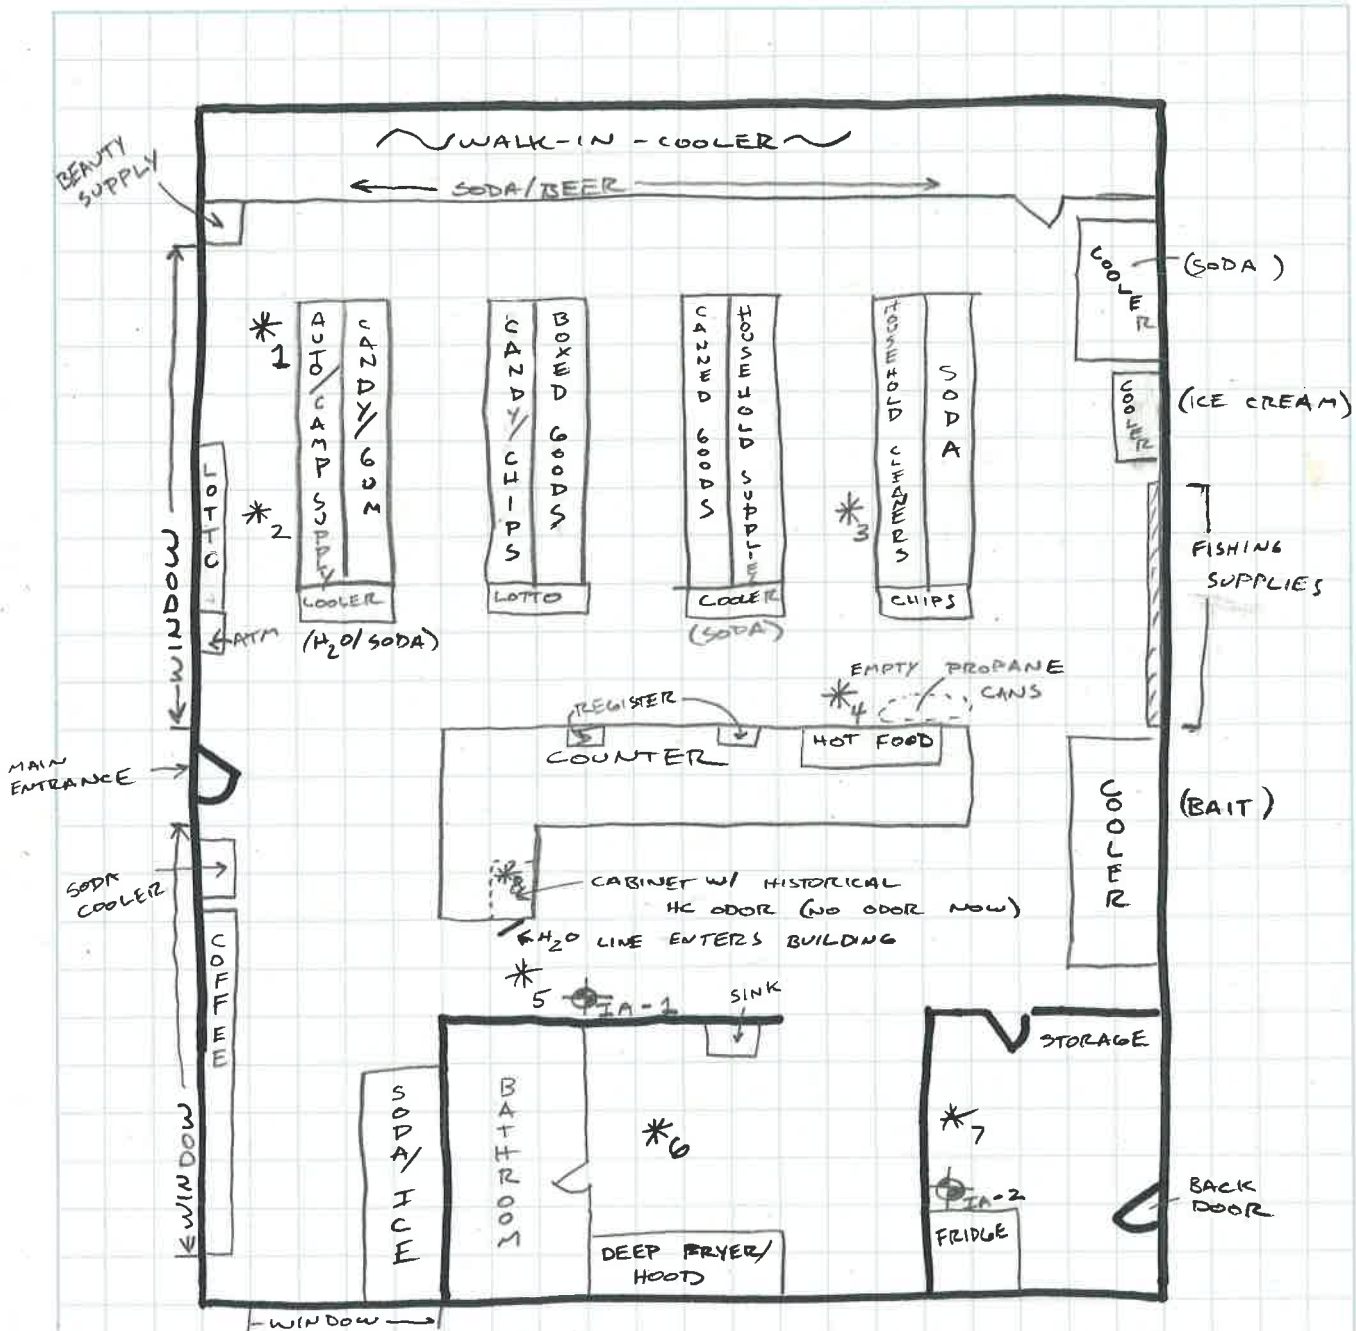 WALK-IN-COOLER
SODA/BEER
BEAUTY
SUPPLY
COOLER
(SODA)
*1
AUTO/CAMP SUPPLY
CANDY/GUM
CANDY/CHIPS
BOXED GOODS
CANNED GOODS
HOUSEHOLD SUPPLIES
HOUSEHOLD CLEANERS
SODA
COOLER
(ICE CREAM)
LOTTO
*2
*3
FISHING
SUPPLIES
WINDOW
COOLER
LOTTO
COOLER
CHIPS
ATM
(H2O/SODA)
(SODA)
EMPTY PROPANE
CANS
*4
REGISTER
HOT FOOD
COUNTER
MAIN
ENTRANCE
COOLER
(BAIT)
SODA
COOLER
*8
CABINET W/ HISTORICAL
HC ODOR (NO ODOR NOW)
H2O LINE ENTERS BUILDING
COFFEE
*5
IA-1
SINK
STORAGE
WINDOW
SODA/ICE
BATHROOM
*6
*7
IA-2
BACK
DOOR
FRIDGE
DEEP FRYER/
HOOD
WINDOW